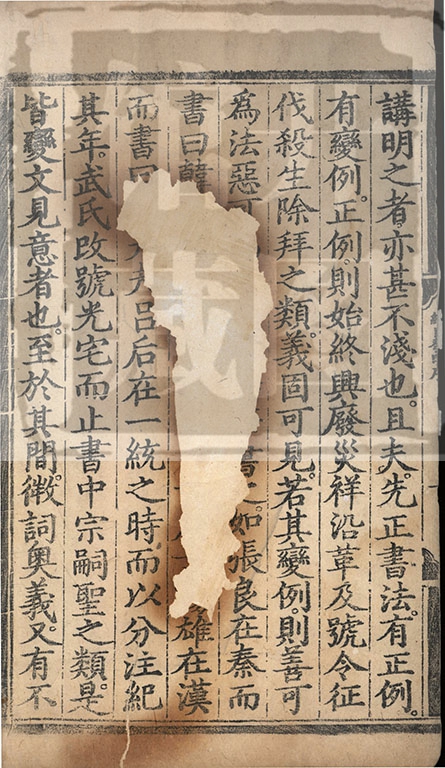 講明之者。亦甚不淺也。且夫。先正書法。有正例。
有變例。正例。則始終興廢災祥沿革及號令征
伐殺生除拜之類。義固可見。若其變例。則善可
為法惡可書之。如張良在秦而
書曰韓雄在漢
而書曰夫呂后在一統之時而以分注紀
其年。武氏改號光宅而止書中宗嗣聖之類。是
皆變文見意者也。至於其間。微詞奧義。又有不